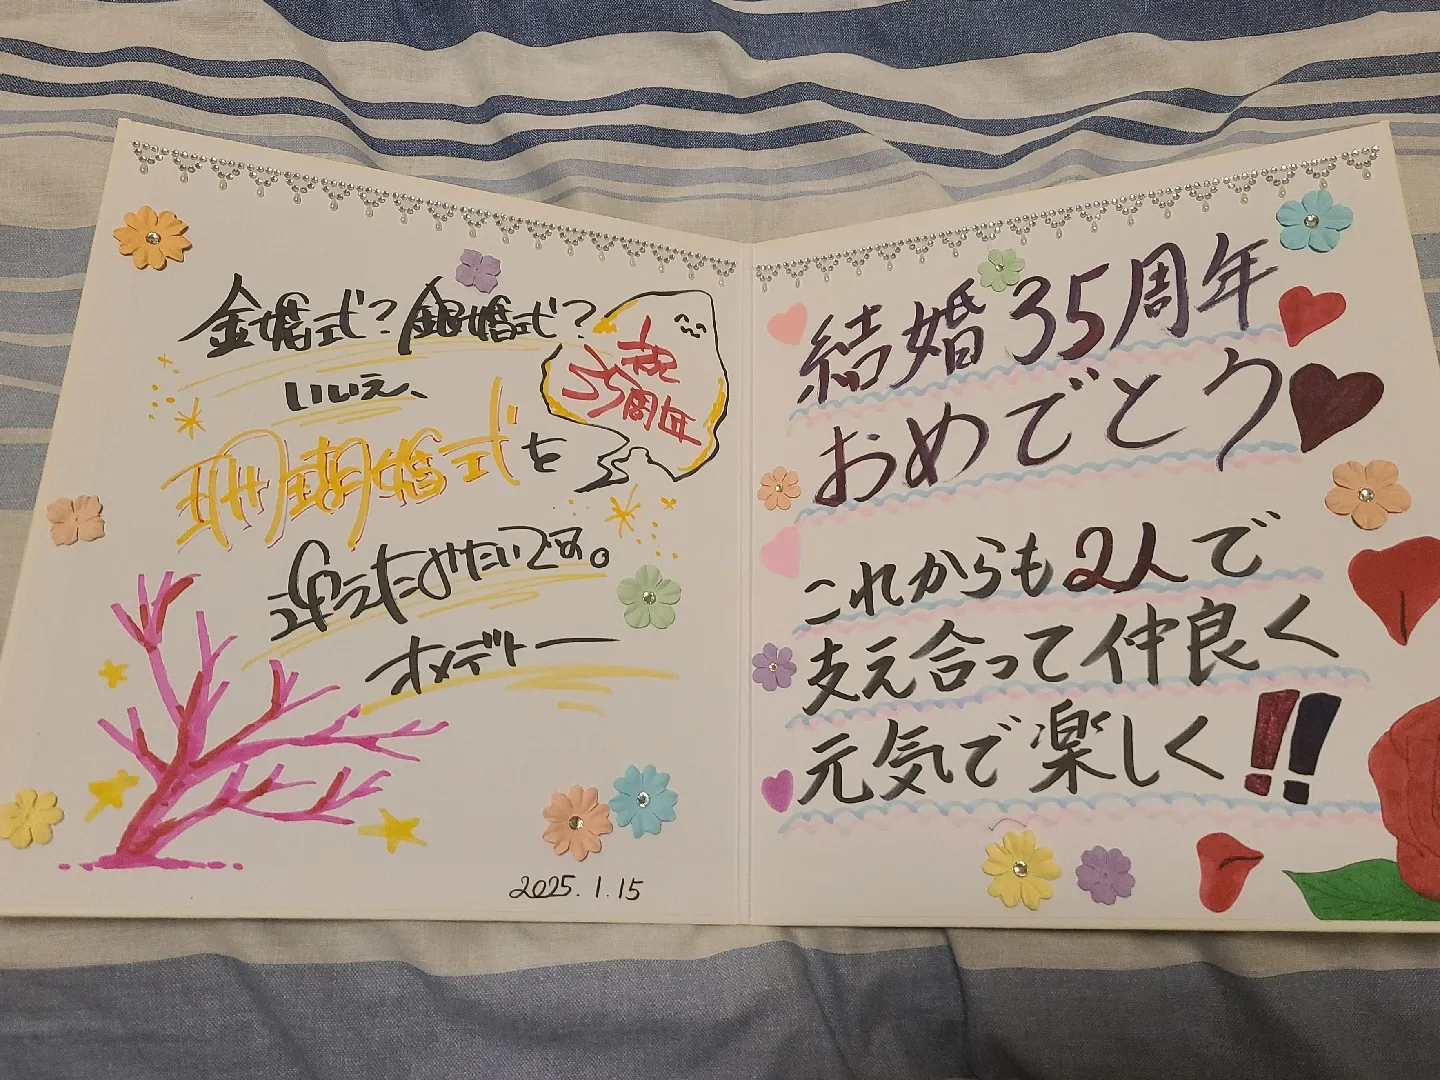 金婚式?銀婚式?
いいえ、
珊瑚婚式を
迎えたみたいです。
オメデトー
祝
35周年
2025.1.15
結婚35周年
おめでとう
これからも2人で
支え合って仲良く
元気で楽しく!!